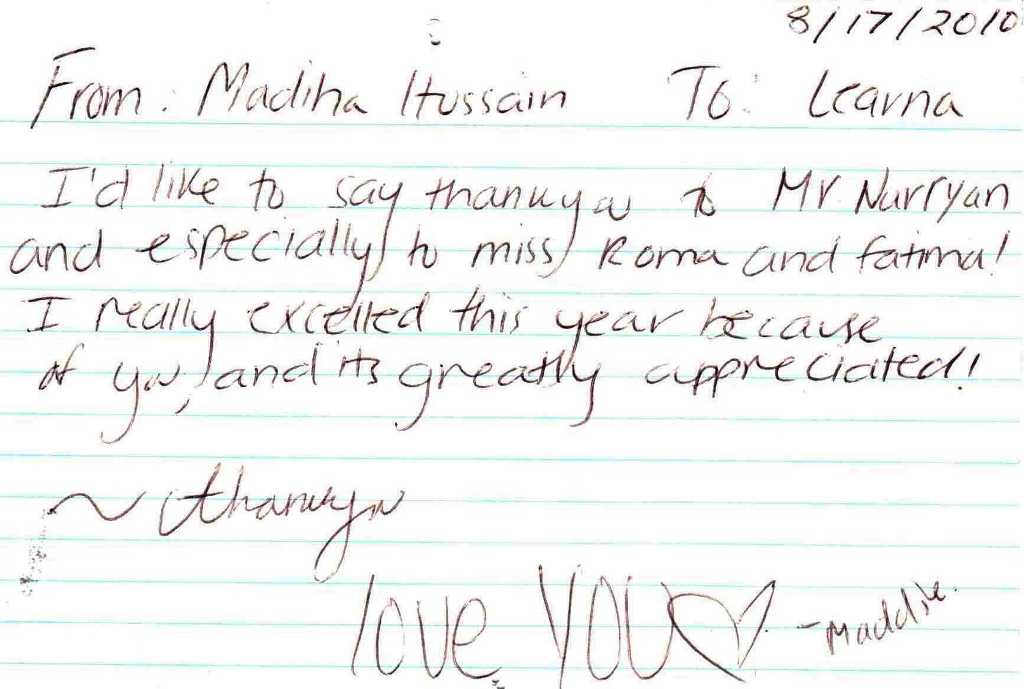 8/17/2010
From: Madiha Hussain To: Learna
I'd like to say thankyou to Mr Nurryan
and especially to miss Roma and fatima!
I really excelled this year because
of you, and its greatly appreciated!
~ thankyou
love YOU ♡ - Maddie.